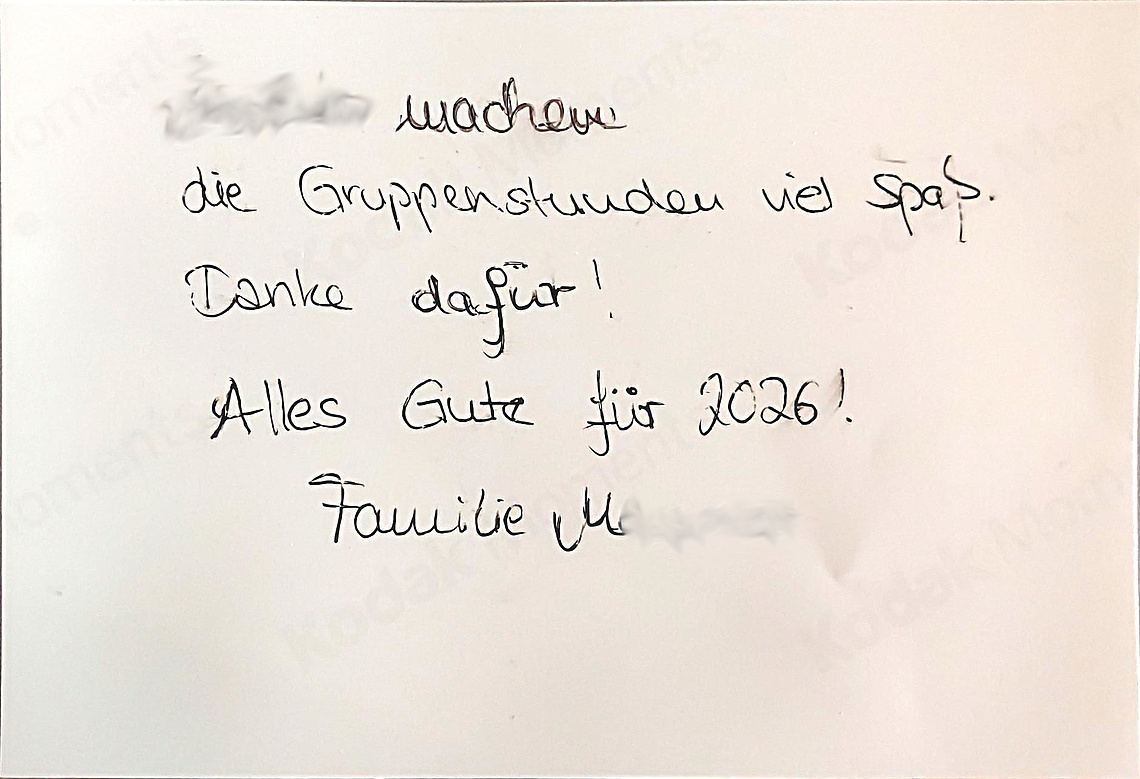 machen
die Gruppenstunden viel Spaß.
Danke dafür!
Alles Gute für 2026!
Familie